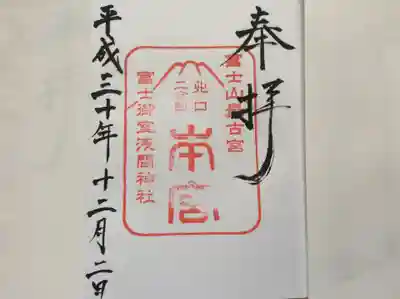 奉拝
富士山最古宮
北口
二合目
本宮
富士御室浅間神社
平成三十年十二月二日